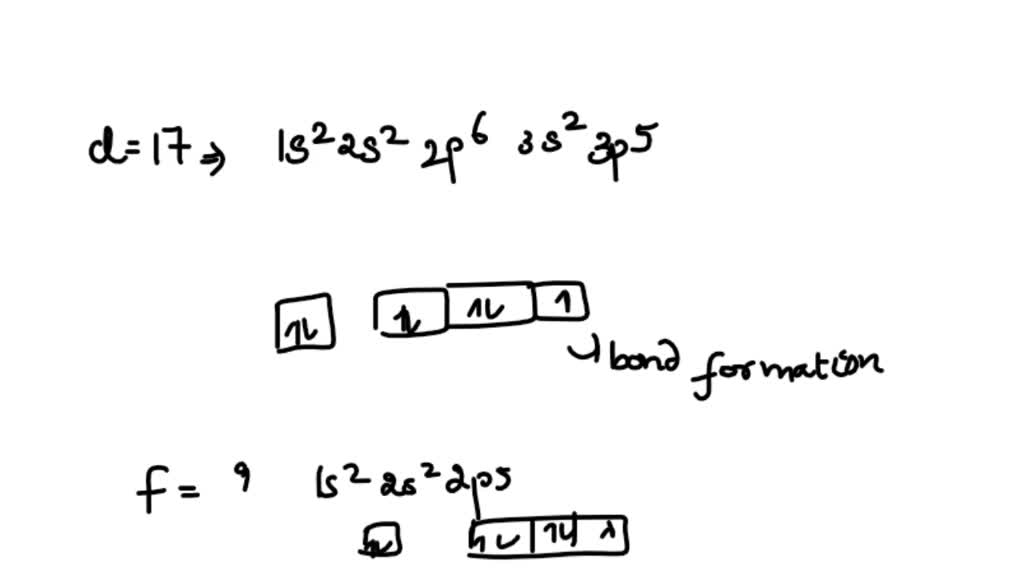 d=17⇒ 1s² 2s² 2p⁶ 3s² 3p⁵
1⇂ 1⇂ 1⇂ 1
↳ bond formation
f = 9 1s² 2s² 2p5
1⇂ 1⇂ 1⇂ 1